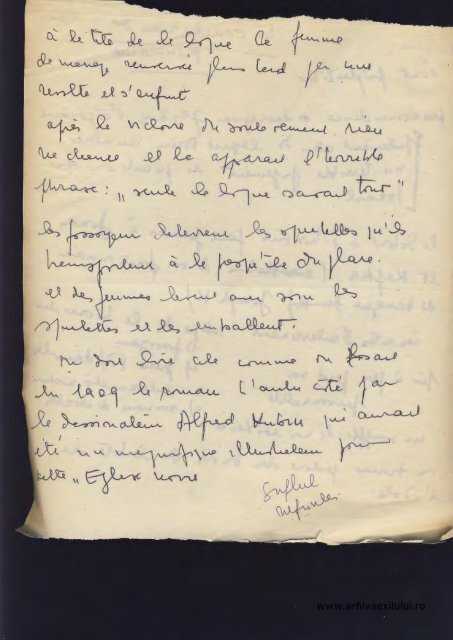 à la tête de la loque la femme
de menage renversée plus tard par une
revolte et s'enfuit
après la victoire du soulevement rien
ne change et là apparait l'terrible
phrase: „seule la loque savait tout"
les fossoyeur deterrent les squelettes qu'ils
transportent à la presqu'ile du phare.
et des femmes lavent avec soin les
squelettes et les emballent.
on doit lire cela comme on
en 1909 le roman L'autre coté par
le dessinateur Alfred Kubin qui aurait
été un magnifique illustrateur pour
cette „Eglise noire
Suflul
www.arhivaexilului.ro